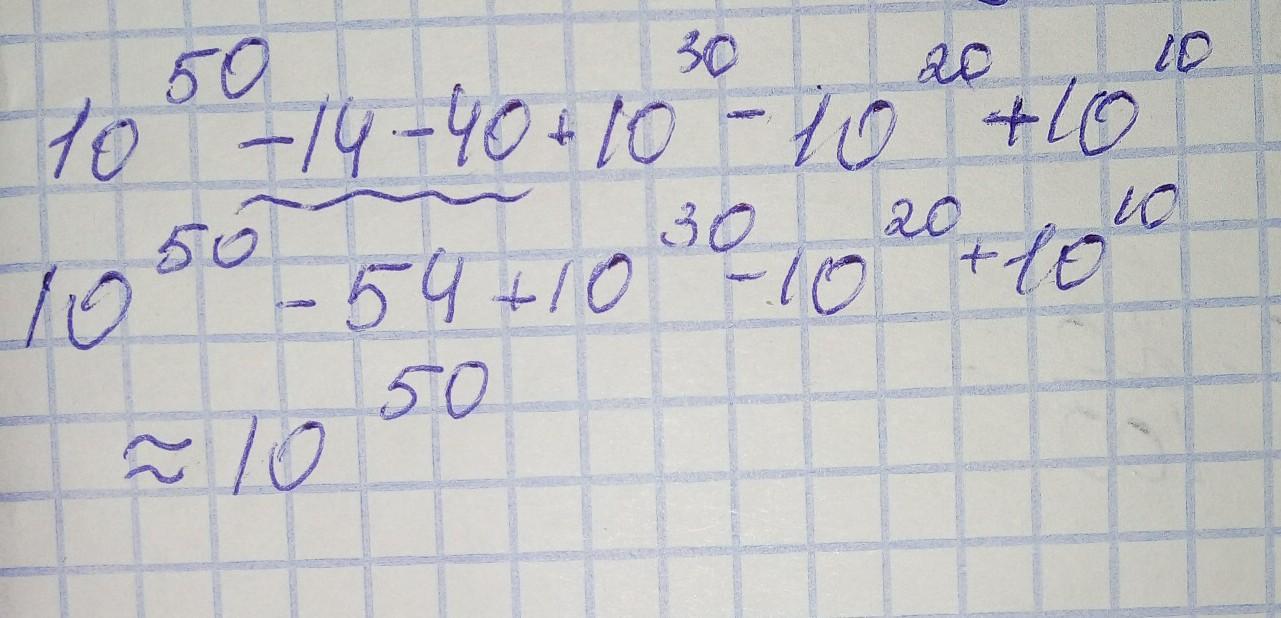 10⁵⁰ -14-40+10³⁰-10²⁰+10¹⁰
10⁵⁰ -54+10³⁰-10²⁰+10¹⁰
≈10⁵⁰